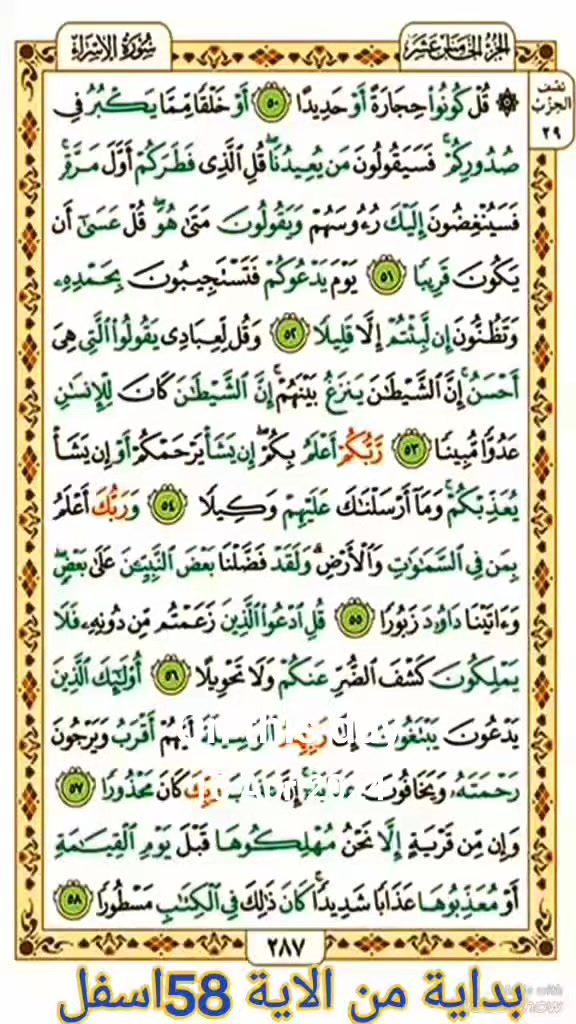 سُورَةُ الإِسْرَاء
الجُزْءُ الخَامِسَ عَشَرَ
نصف
الحزب
٢٩
۞ قُلْ كُونُوا۟ حِجَارَةً أَوْ حَدِيدًا ٥٠ أَوْ خَلْقًا مِّمَّا يَكْبُرُ فِى
صُدُورِكُمْ ۚ فَسَيَقُولُونَ مَن يُعِيدُنَا ۖ قُلِ ٱلَّذِى فَطَرَكُمْ أَوَّلَ مَرَّةٍ ۚ
فَسَيُنْغِضُونَ إِلَيْكَ رُءُوسَهُمْ وَيَقُولُونَ مَتَىٰ هُوَ ۖ قُلْ عَسَىٰٓ أَن
يَكُونَ قَرِيبًا ٥١ يَوْمَ يَدْعُوكُمْ فَتَسْتَجِيبُونَ بِحَمْدِهِۦ
وَتَظُنُّونَ إِن لَّبِثْتُمْ إِلَّا قَلِيلًا ٥٢ وَقُل لِّعِبَادِى يَقُولُوا۟ ٱلَّتِى هِىَ
أَحْسَنُ ۚ إِنَّ ٱلشَّيْطَـٰنَ يَنزَغُ بَيْنَهُمْ ۚ إِنَّ ٱلشَّيْطَـٰنَ كَانَ لِلْإِنسَـٰنِ
عَدُوًّا مُّبِينًا ٥٣ رَّبُّكُمْ أَعْلَمُ بِكُمْ ۖ إِن يَشَأْ يَرْحَمْكُمْ أَوْ إِن يَشَأْ
يُعَذِّبْكُمْ ۚ وَمَآ أَرْسَلْنَـٰكَ عَلَيْهِمْ وَكِيلًا ٥٤ وَرَبُّكَ أَعْلَمُ
بِمَن فِى ٱلسَّمَـٰوَٰتِ وَٱلْأَرْضِ ۗ وَلَقَدْ فَضَّلْنَا بَعْضَ ٱلنَّبِيِّـۧنَ عَلَىٰ بَعْضٍ ۖ
وَءَاتَيْنَا دَاوُۥدَ زَبُورًا ٥٥ قُلِ ٱدْعُوا۟ ٱلَّذِينَ زَعَمْتُم مِّن دُونِهِۦ فَلَا
يَمْلِكُونَ كَشْفَ ٱلضُّرِّ عَنكُمْ وَلَا تَحْوِيلًا ٥٦ أُو۟لَـٰٓئِكَ ٱلَّذِينَ
يَدْعُونَ يَبْتَغُونَ أَيُّهُمْ أَقْرَبُ وَيَرْجُونَ
رَحْمَتَهُۥ وَيَخَافُونَ كَانَ مَحْذُورًا ٥٧
وَإِن مِّن قَرْيَةٍ إِلَّا نَحْنُ مُهْلِكُوهَا قَبْلَ يَوْمِ ٱلْقِيَـٰمَةِ
أَوْ مُعَذِّبُوهَا عَذَابًا شَدِيدًا ۚ كَانَ ذَٰلِكَ فِى ٱلْكِتَـٰبِ مَسْطُورًا ٥٨
٢٨٧
بداية من الاية 58اسفل